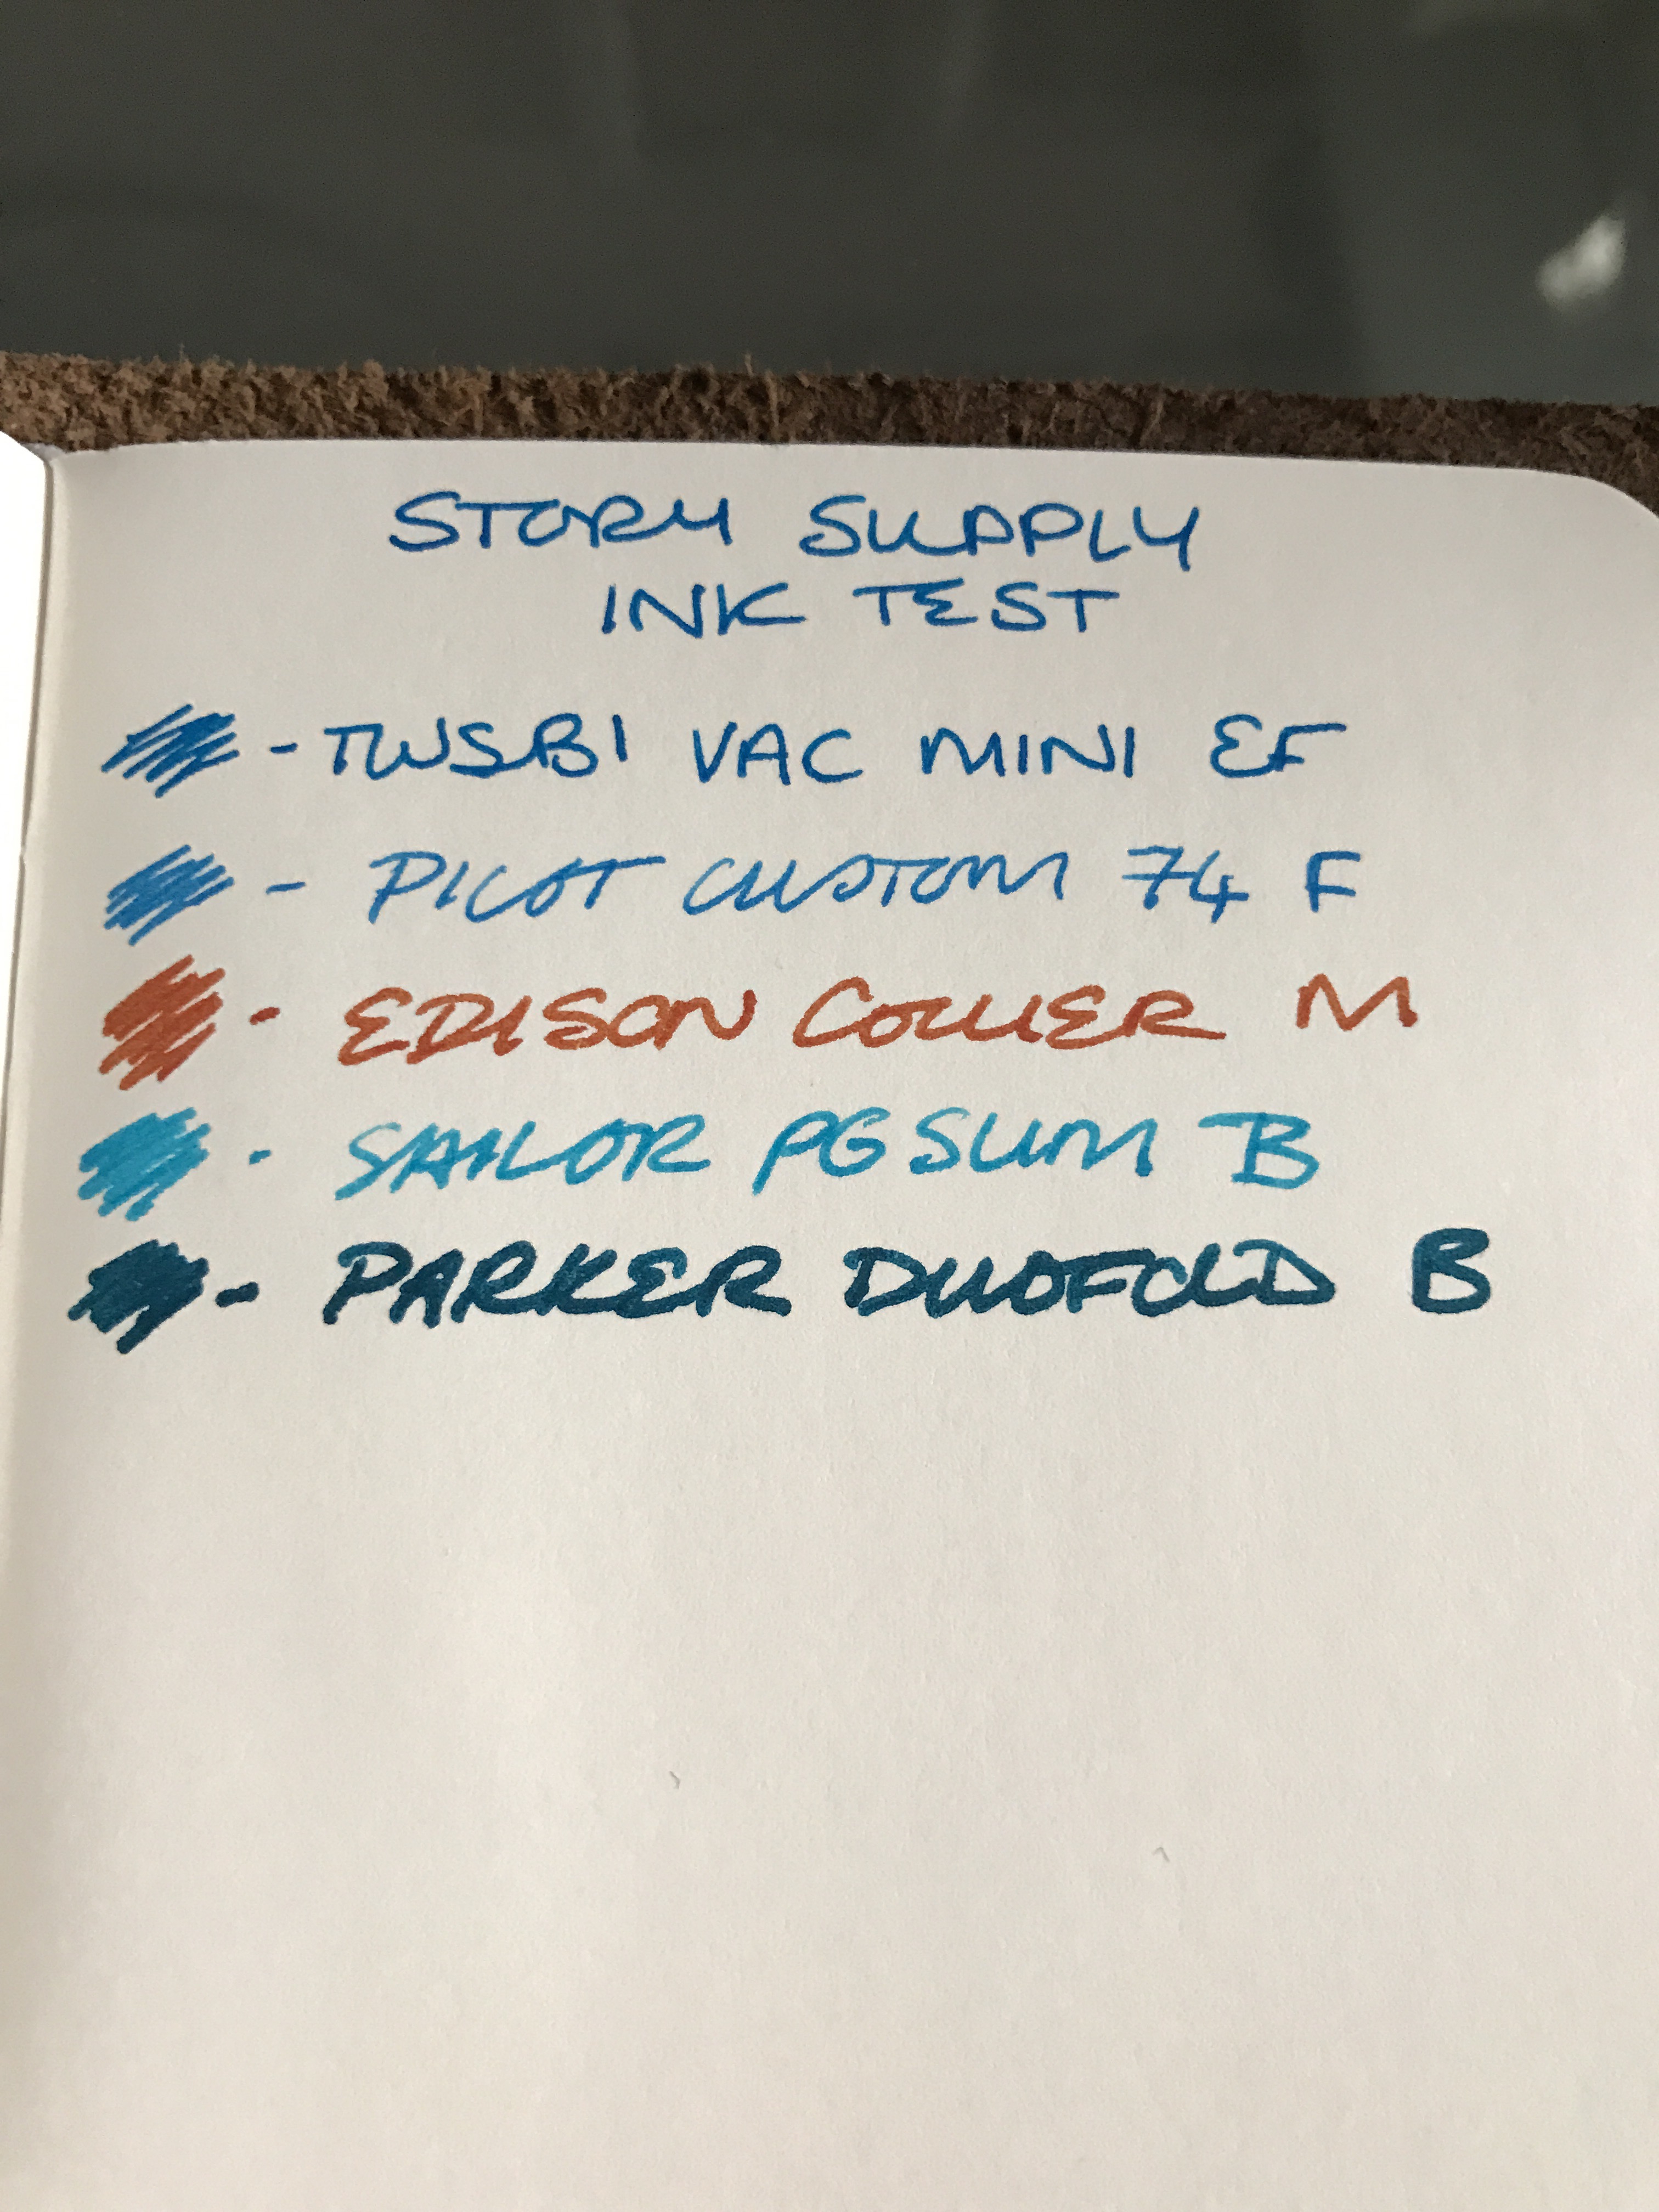 STORY SUPPLY
INK TEST
- TWSBI VAC MINI EF
- PILOT CUSTOM 74 F
- EDISON COLLIER M
- SAILOR PG SLIM B
- PARKER DUOFOLD B